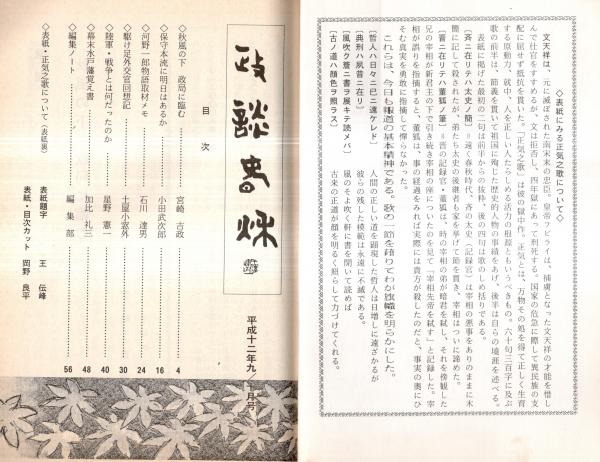 ◇表紙にみる正気之歌について◇
文天祥は、元に滅ぼされた南宋末の忠臣。皇帝フビライは、捕虜となった文天祥の才能を惜し
んで仕官をすすめるが、文は拒否し、四年獄にあって刑死する。国家の危急に際して異民族の支
配に屈せず抵抗を貫いた。「正気之歌」は彼の獄中作。正気とは、万物その処を得て正しく生育
する原動力、就中、人を正しい人たらしめる活力の根源ともいうべきもの。六十句三百字に及ぶ
歌の前半は、節義を貫いて祖国に殉じた歴史的人物の事績をあげ、後半は自らの境涯を述べる。
表紙に掲げた最初の二句は前半からの抜粋、後の四句は歌のしめ括りである。
〔斉ニ在リテハ太史ノ簡〕＝遠く春秋時代、斉の太史（記録官）は宰相の悪事をありのままに木
簡に記して殺されたが、弟たち太史の後継者も家を挙げて節を貫き、宰相はついに諦めた。
〔晋ニ在リテハ董狐ノ筆〕＝晋の記録官・董狐は、時の宰相の弟が暗君を弑し、それを傍観した
兄の宰相が新君主の下で引き続き宰相の座についたのを見て「宰相先帝を弑す」と記録した。宰
相が誤りを指摘すると、董狐は、事の経過をみれば実際には貴方が殺したのだと、事実の奥にひ
そむ真実を勇敢に指摘して憚らなかった。
これらは、今日も報道の基本精神である。歌の一節を藉りてわが旗幟を明らかにした。
〔哲人ハ日々ニ已ニ遠ケレド〕 人間の正しい道を顕現した哲人は日増しに遠ざかるが
〔典刑ハ夙昔ニ在リ〕 彼らの残した模範は永遠に不滅である。
〔風吹ク簷ニ書ヲ展キテ読メバ〕 風のそよ吹く軒に書を開いて読めば
〔古ノ道ハ顔色ヲ照ラス〕 古来の正道が顔を明るく照らして力づけてくれる。
政談春秋
平成十二年九／
月号
目 次
◇秋風の下 政局に臨む 宮崎 吉政 4
◇保守本流に明日はあるか 小田武次郎 16
◇河野一郎物語取材メモ 石川 達男 24
◇駆け足外交官回想記 土屋小窓外 30
◇陸軍・戦争とは何だったのか 星野 憲一 40
◇幕末水戸藩覚え書 加比 礼三 48
◇編集ノート 編 集 部 56
◇表紙・正気之歌について（表紙裏）
表紙題字 王 伝峰
表紙・目次カット 岡野 良平